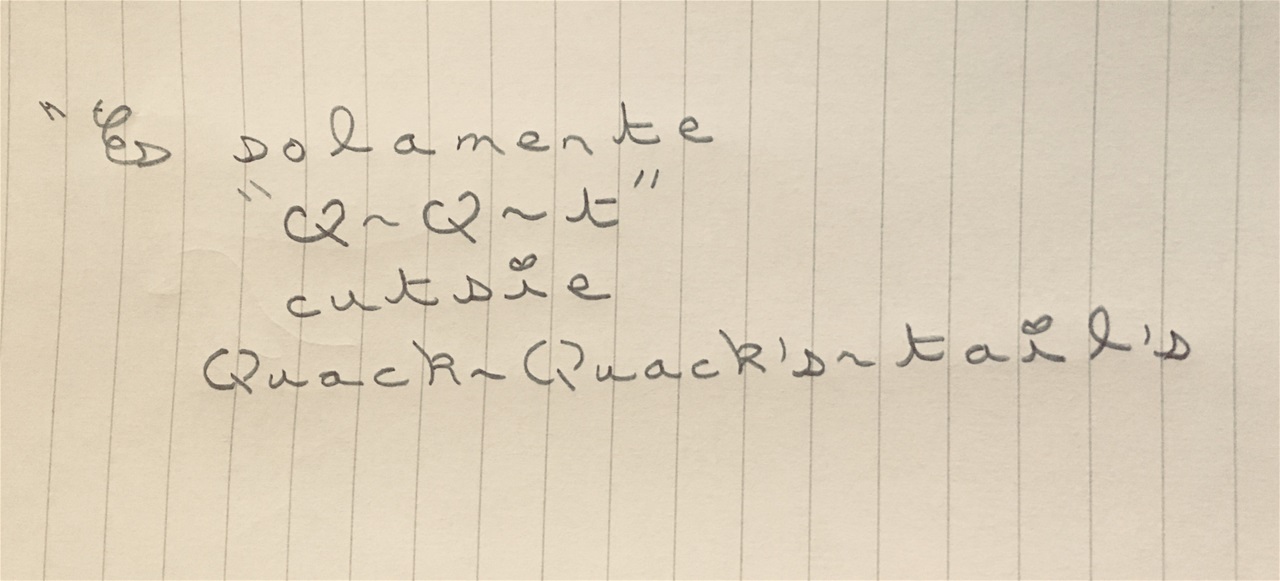 "Es solamente
"Q~Q~t"
cutsie
Quack~Quack's~tail's